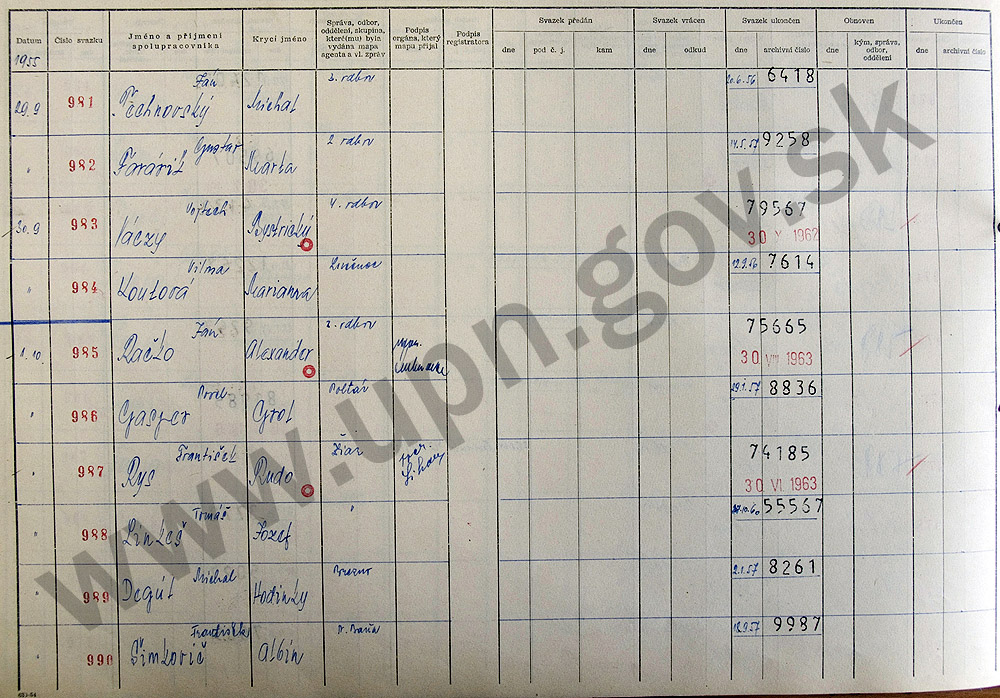 Datum Číslo svazku Jméno a příjmení spolupracovníka Krycí jméno Správa, odbor, oddělení, skupina, které(mu) byla vydána mapa agenta a vl. zpráv Podpis orgána, který mapu přijal Podpis registratora Svazek předán Svazek vrácen Svazek ukončen Obnoven Ukončen
dne pod č. j. kam dne odkud dne archivní číslo dne kým, správa, odbor, oddělení dne archivní číslo
1955
29.9 981 Ján Čechnovský Michal 3. odbor 20.6.56 6418
" 982 Gustáv Marta 2 odbor 14.5.57 9258
30.9 983 Vojtech Váczy Bystrický 4. odbor 79567
30 X 1962
" 984 Vilma Koutová Marianna Lučenec 12.9.56 7614
1.10. 985 Ján Račko Alexander 2. odbor 75665
30 VIII 1963
" 986 Gasper Grof Poltár 29.1.57 8836
" 987 František Rys Rudo Žiar 74185
30 VI. 1963
" 988 Tomáš Linkeš Jozef " 27.10.60 55567
" 989 Michal Degút Hodinky Brezno 2.1.57 8261
" 990 František Šimkovič Albín 9987
www.upn.gov.sk